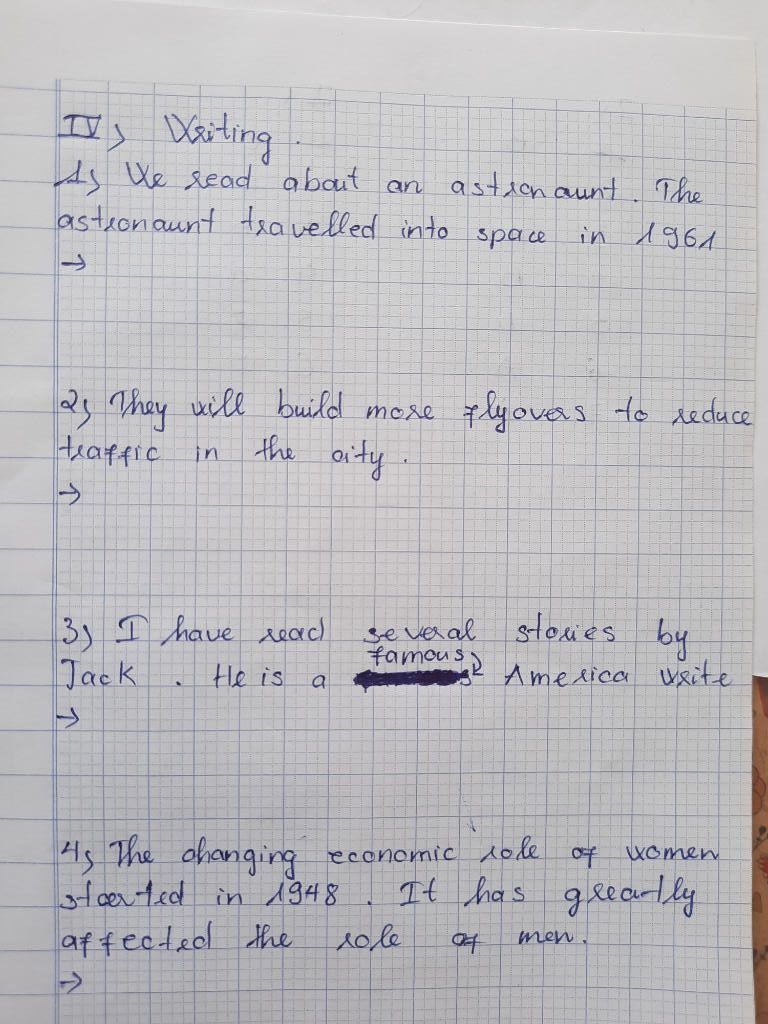 IV, Writing.
1, We read about an astronaunt. The
astronaunt travelled into space in 1961
→
2, They will build more flyovers to reduce
traffic in the city.
→
3, I have read several stories by
famous
Jack. He is a America write
→
4, The changing economic role of women
started in 1948. It has greatly
affected the role of men.
→